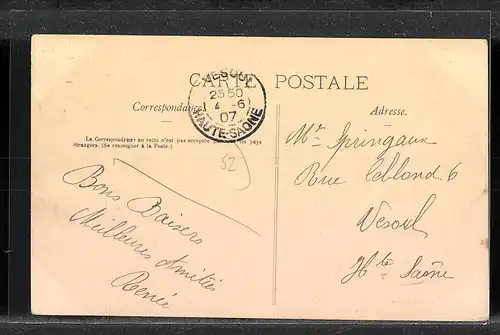 CARTE POSTALE
VESOUL
23 50
14 -6
07
HAUTE-SAONE
Correspondance
Adresse.
La Correspondance au recto n'est pas acceptée par tous les pays
étrangers. (Se renseigner à la Poste.)
52
Bons Baisers
Meilleures Amitiés
Renée
Mr Springaux
Rue Leblond 6
Vesoul
Hte Saône